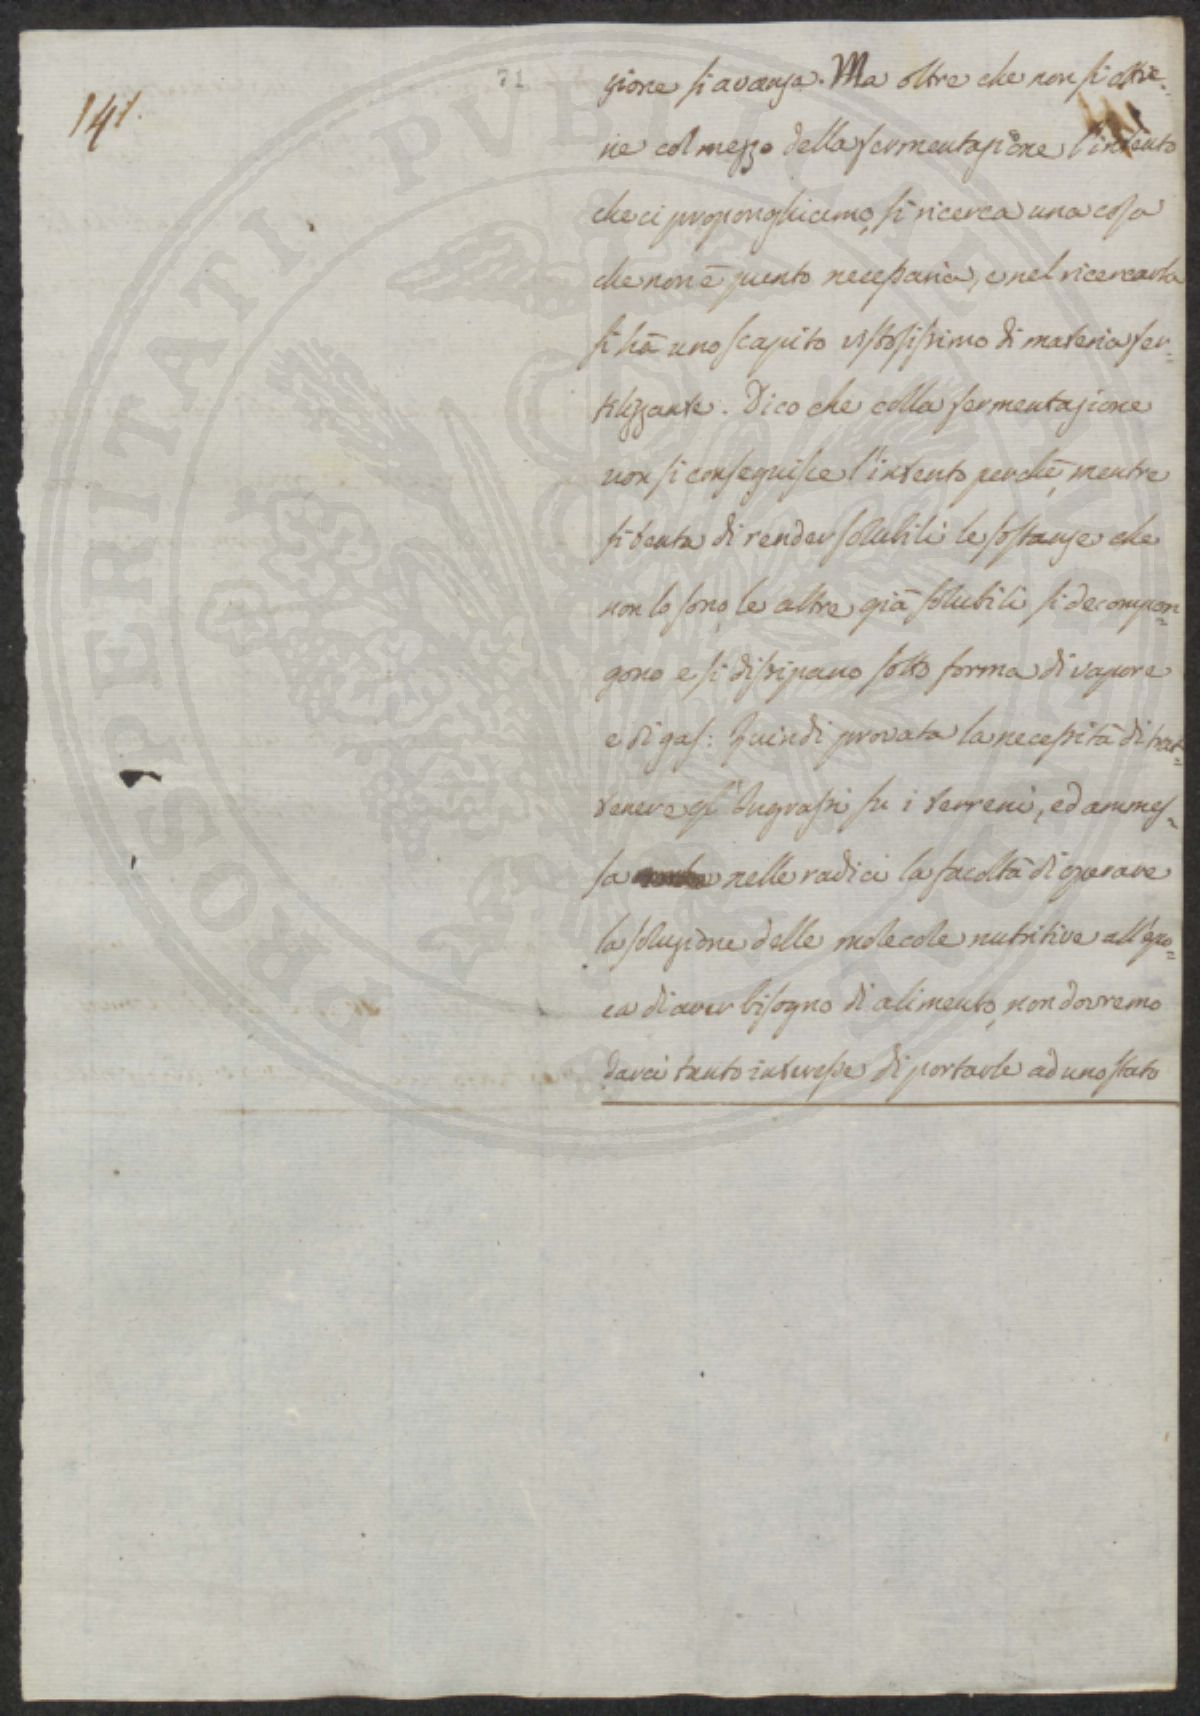 141.
71
zione si avanza. Ma oltre che non si ottie-
ne col mezzo della fermentazione l'intento
che ci proponghiamo, si ricerca una cosa
che non è punto necessaria, e nel ricercarla
si hà uno scapito vistosissimo di materia fer=
tilizzante. Dico che colla fermentazione
non si conseguisce l'intento perchè, mentre
si tenta di render solubili le sostanze che
non lo sono, le altre già solubili si decompon=
gono e si dissipano sotto forma di vapore
e di gas: Quindi provata la necessità di trat=
tenere gl'Ingrassi su i terreni, ed ammes=
sa nelle radici la facoltà di operare
la soluzione delle molecole nutritive all'epo=
ca di aver bisogno di alimento, non dovremo
darci tanto interesse di portarle ad uno stato
PROSPERITATI PVBLICAE